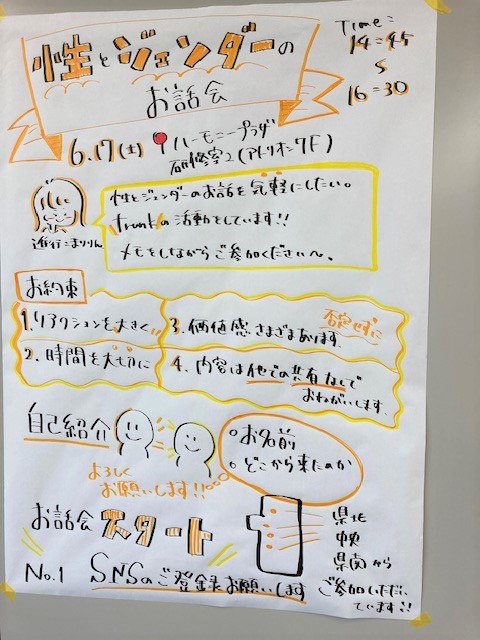 性とジェンダーの
お話会
Time:
14:45
~
16:30
6.17(土) ハーモニープラザ
研修室2(アトリオン7F)
性とジェンダーのお話を気軽にしたい。
trunkの活動をしています!!
メモをしながらご参加ください〜。
進行:まりりん
お約束
1.リアクションを大きく
2.時間を大切に
3.価値感さまざまあります。
否定せずに
4.内容は他での共有なしで
おねがいします。
自己紹介
よろしく
お願いします!!
お名前
どこから来たのか
お話会スタート
県北
中央
県南から
ご参加いただい
ています!!
No.1 SNSのご登録お願いします